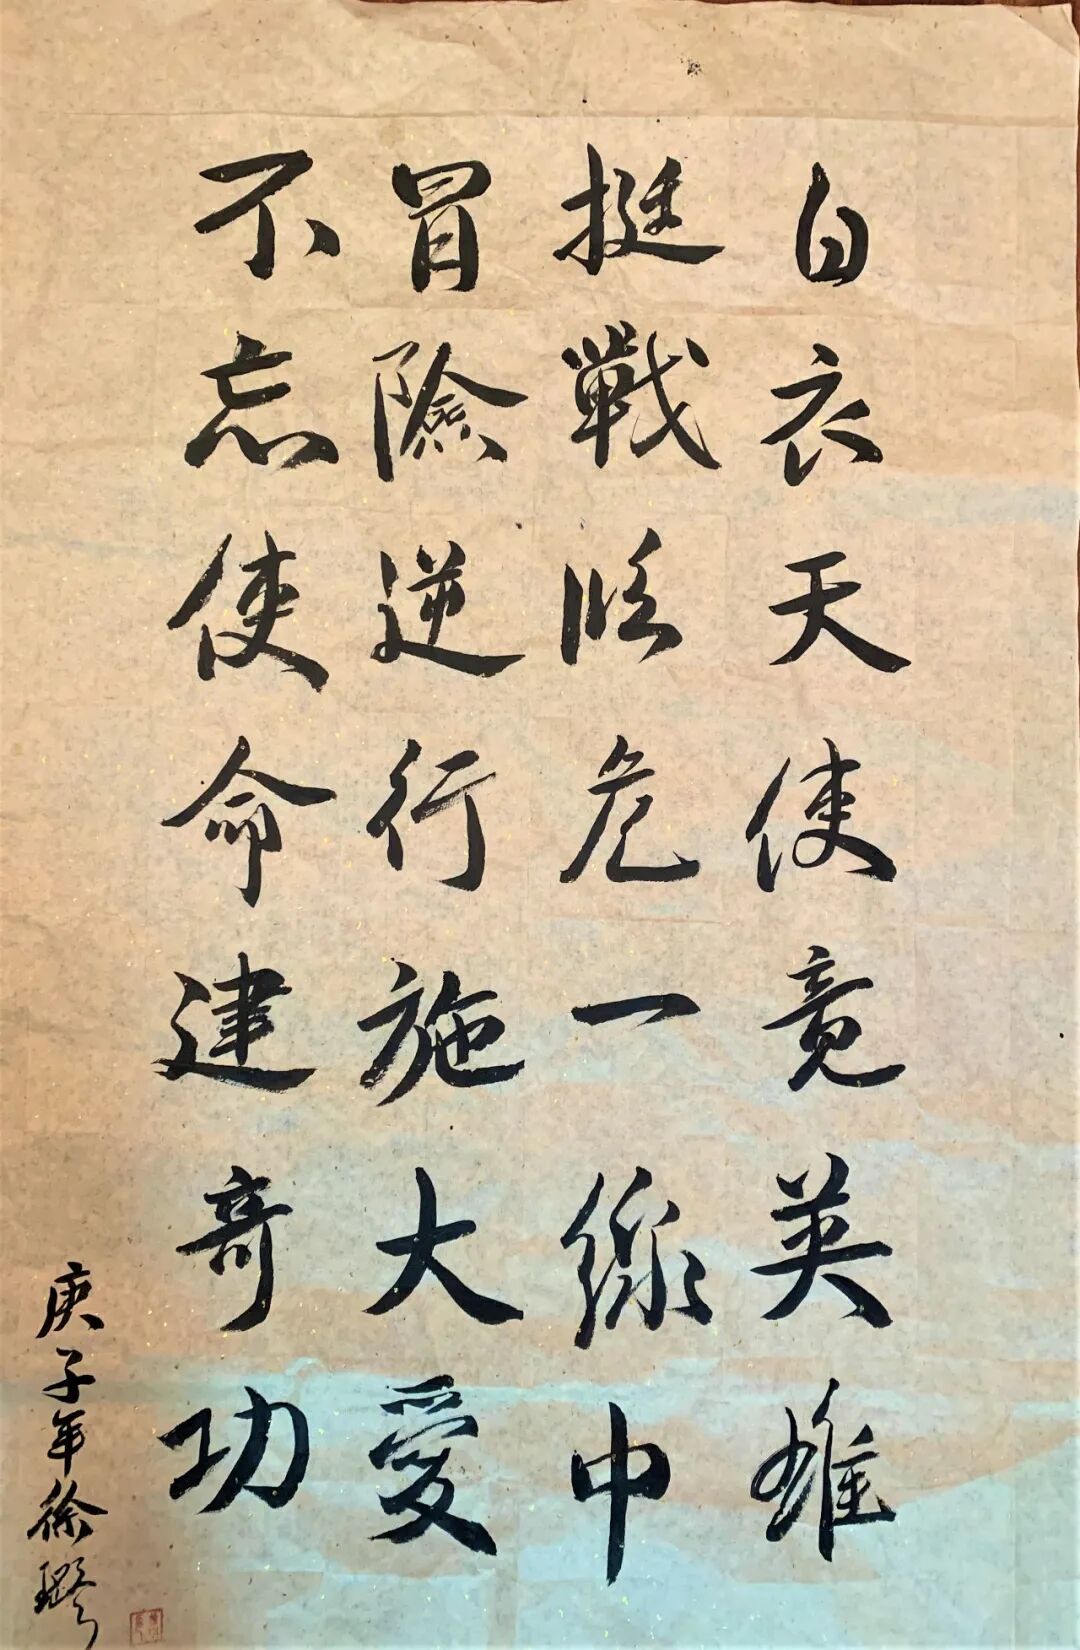 白衣天使竟英雄
挺戰临危一線中
冒險逆行施大愛
不忘使命建奇功
庚子年徐